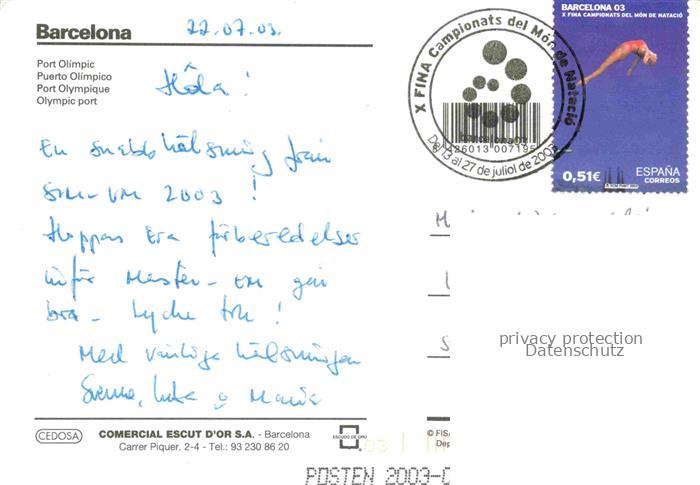 Barcelona
22.07.03.
Port Olímpic
Puerto Olímpico
Port Olympique
Olympic port
Hola!
En snabb hälsning från
sim-VM 2003!
Hoppas Era förberedelser
inför Master-EM går
bra - Lycka till!
Med vänliga hälsningar
o Maria
CEDOSA
COMERCIAL ESCUT D'OR S.A. - Barcelona
Carrer Piquer, 2-4 - Tel.: 93 230 86 20
ESCUDO DE ORO
X FINA Campionats del Món de Natació
Barcelona 03
426013 007195
De 13 al 27 de juliol de 2003
BARCELONA 03
X FINA CAMPIONATS DEL MÓN DE NATACIÓ
0,51€
ESPAÑA
CORREOS
privacy protection
Datenschutz
© FISA
Dep
POSTEN 2003-0